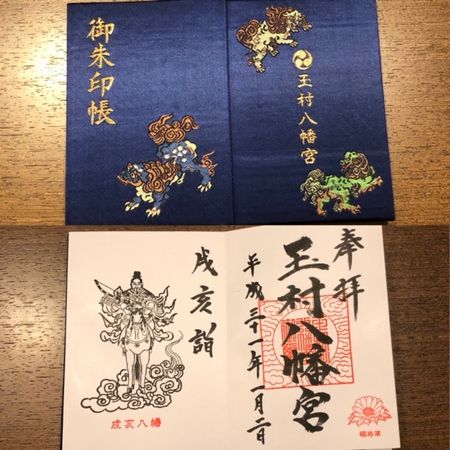 御朱印帳
玉村八幡宮
奉拝
玉村八幡宮
平成三十一年一月二日
福寿草
戌亥詣
戌亥八幡